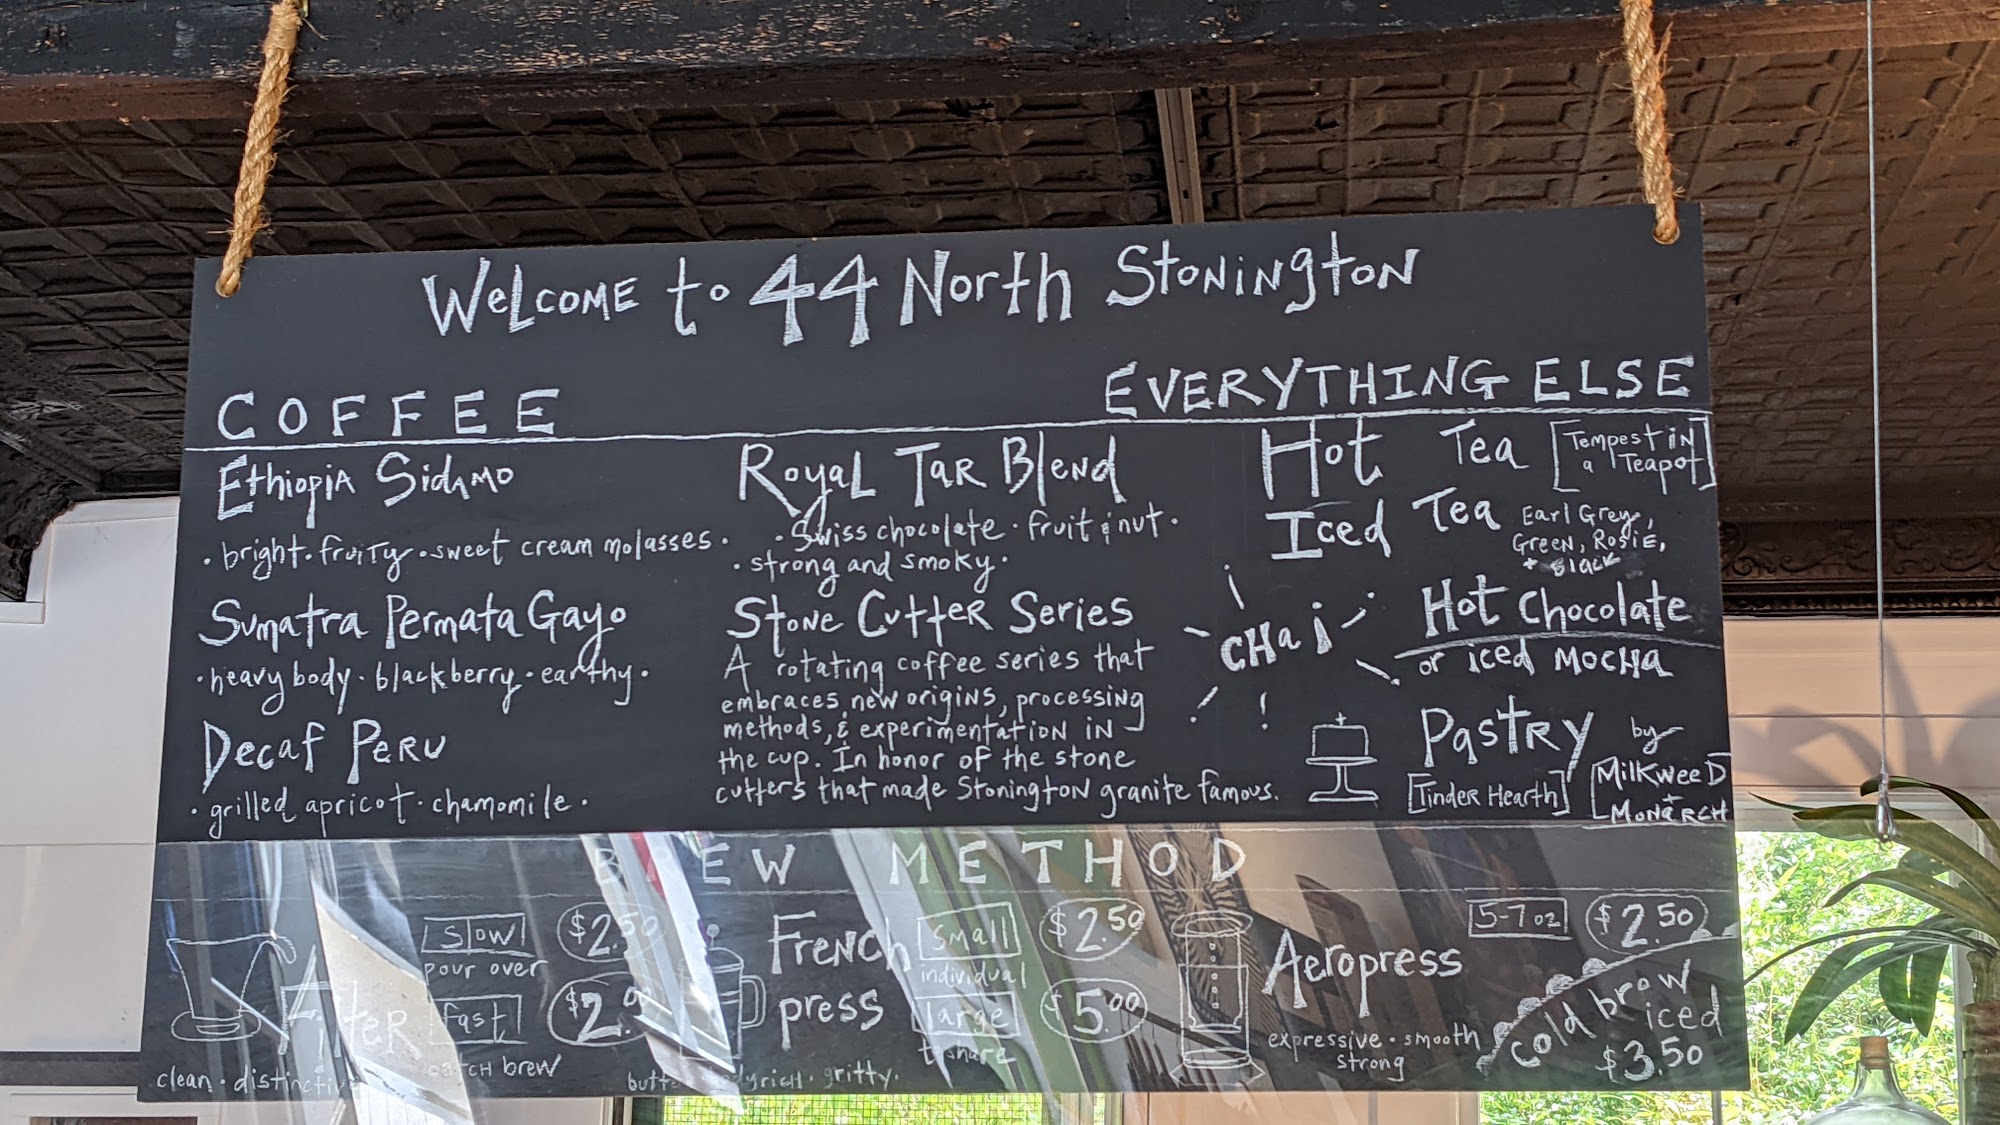 Welcome to 44 North Stonington
COFFEE
Ethiopia Sidamo
· bright · fruity · sweet cream molasses ·
Sumatra Permata Gayo
· heavy body · blackberry · earthy ·
Decaf Peru
· grilled apricot · chamomile ·
Royal Tar Blend
· Swiss chocolate · fruit & nut ·
· strong and smoky ·
Stone Cutter Series
A rotating coffee series that
embraces new origins, processing
methods, & experimentation in
the cup. In honor of the stone
cutters that made Stonington granite famous.
EVERYTHING ELSE
Hot Tea [Tempest in
a Teapot]
Iced Tea
Earl Grey,
Green, Rosie,
+ Black
CHai
Hot Chocolate
or iced MOCHA
Pastry by
[Tinder Hearth]
[Milkweed
+
Monarch
BREW METHOD
Filter
slow $2.50
pour over
fast $2.00
batch brew
clean · distinctive
French
press
small $2.50
individual
large $5.00
to share
gritty ·
Aeropress
5-7 oz $2.50
expressive · smooth
strong
Cold brew
iced
$3.50